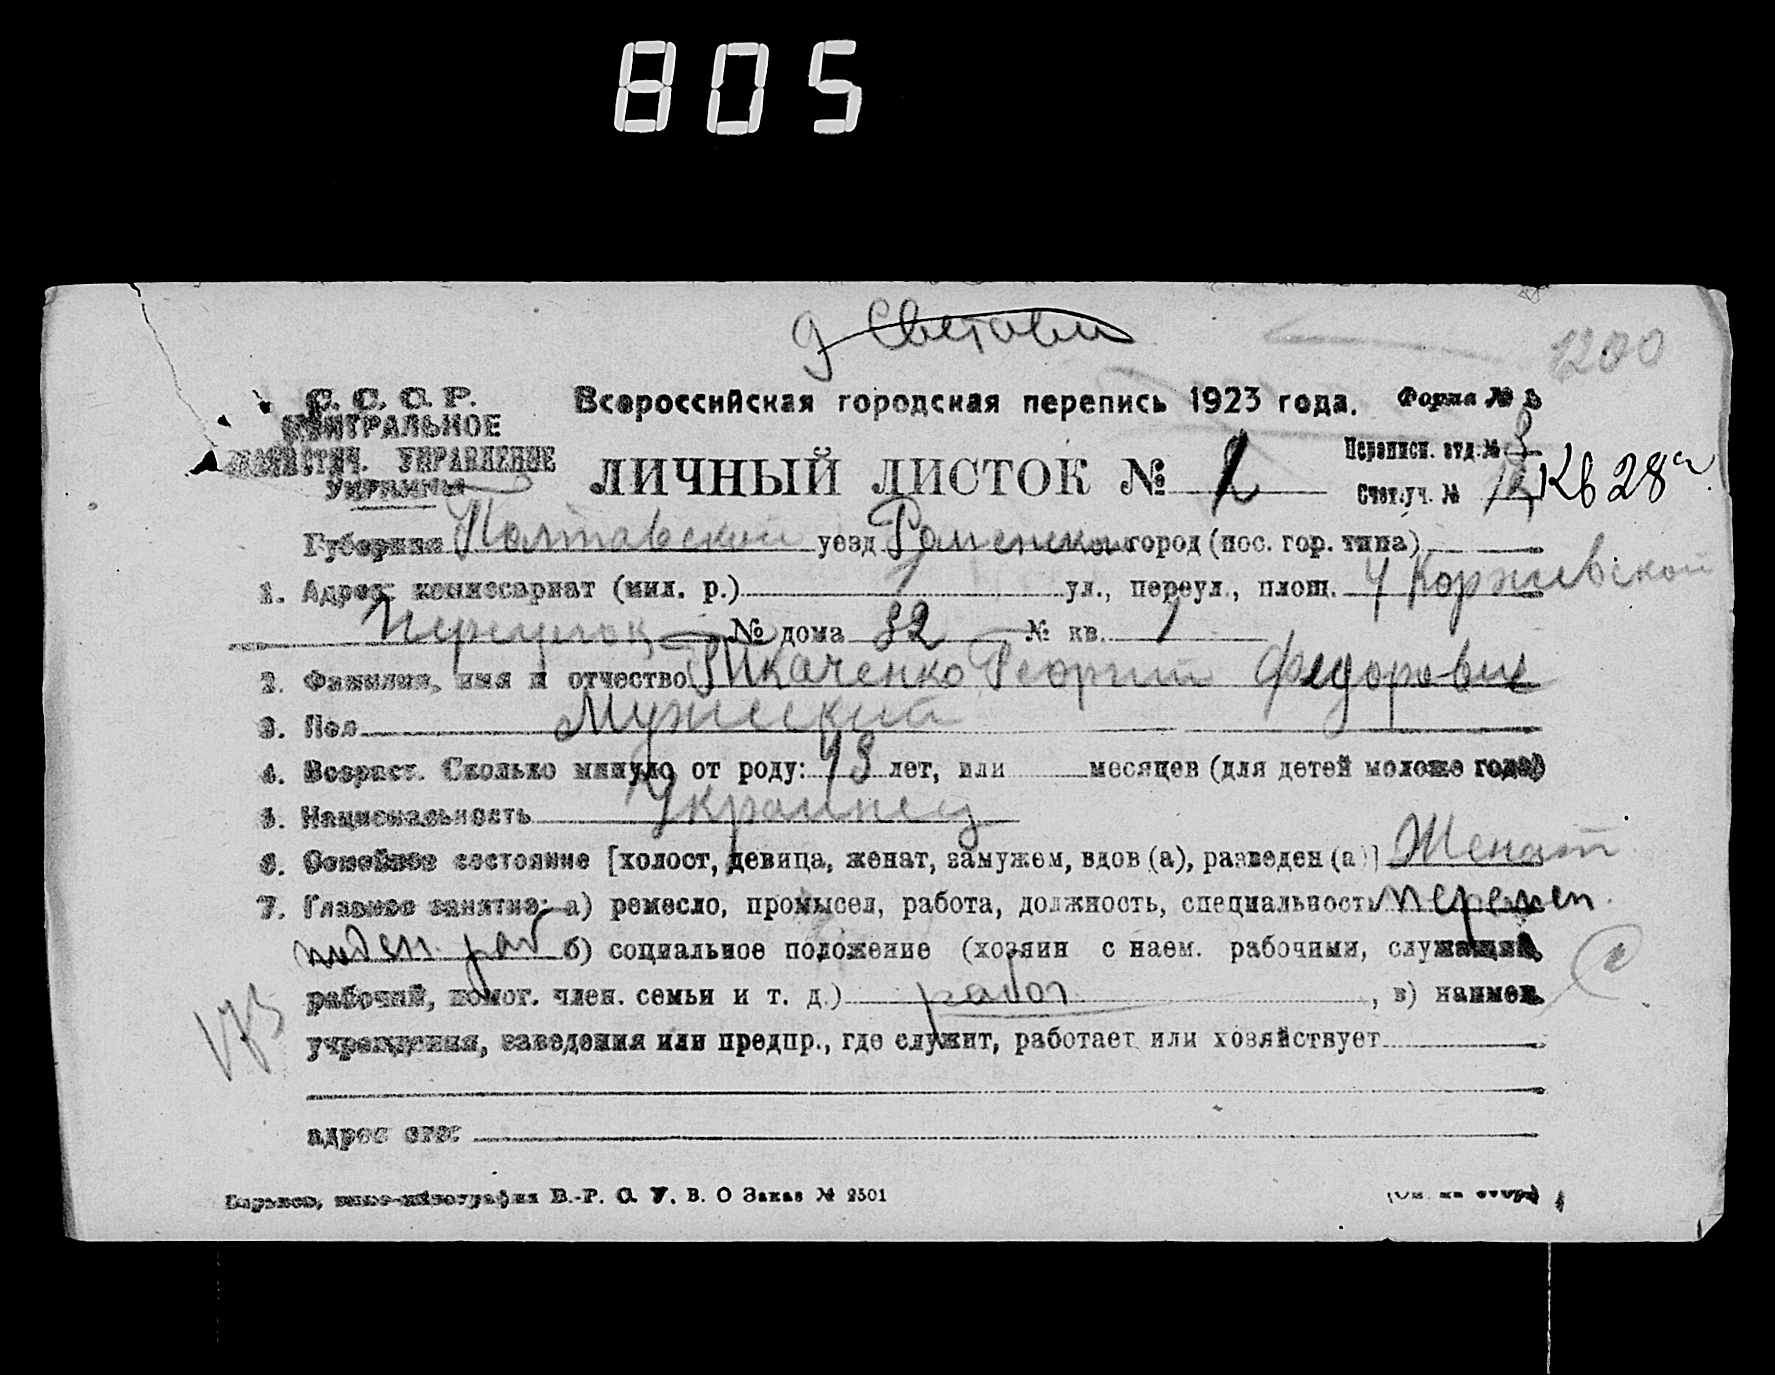 805
1200
С. С. С. Р. Всероссийская городская перепись 1923 года. Форма №
ЦЕНТРАЛЬНОЕ
СТАТИСТИЧ. УПРАВЛЕНИЕ ЛИЧНЫЙ ЛИСТОК № 2 Переписн. отд. №
УКРАИНЫ Счет.уч. № Кв 28
Губерния Полтавской уезд Роменском город (пос. гор. типа)
1. Адрес: комиссариат (мил. р.) ул., переул., площ. 4 Коржевской
переулок № дома 32 № кв. 1
2. Фамилия, имя и отчество Ткаченко Георгий Федорович
3. Пол Мужеский
4. Возраст. Сколько минуло от роду: 43 лет, или месяцев (для детей моложе года)
5. Национальность Украинец
6. Семейное состояние [холост, девица, женат, замужем, вдов (а), разведен (а)] Женат
7. Главное занятие: а) ремесло, промысел, работа, должность, специальность
поден. раб б) социальное положение (хозяин с наем. рабочими, служащий,
рабочий, помог. член. семьи и т. д.) рабоч , в) наимен.
учреждения, заведения или предпр., где служит, работает или хозяйствует
адрес его:
Харьков, В.-Р. С. У. В. О Заказ № 2501 (См. на обор.)